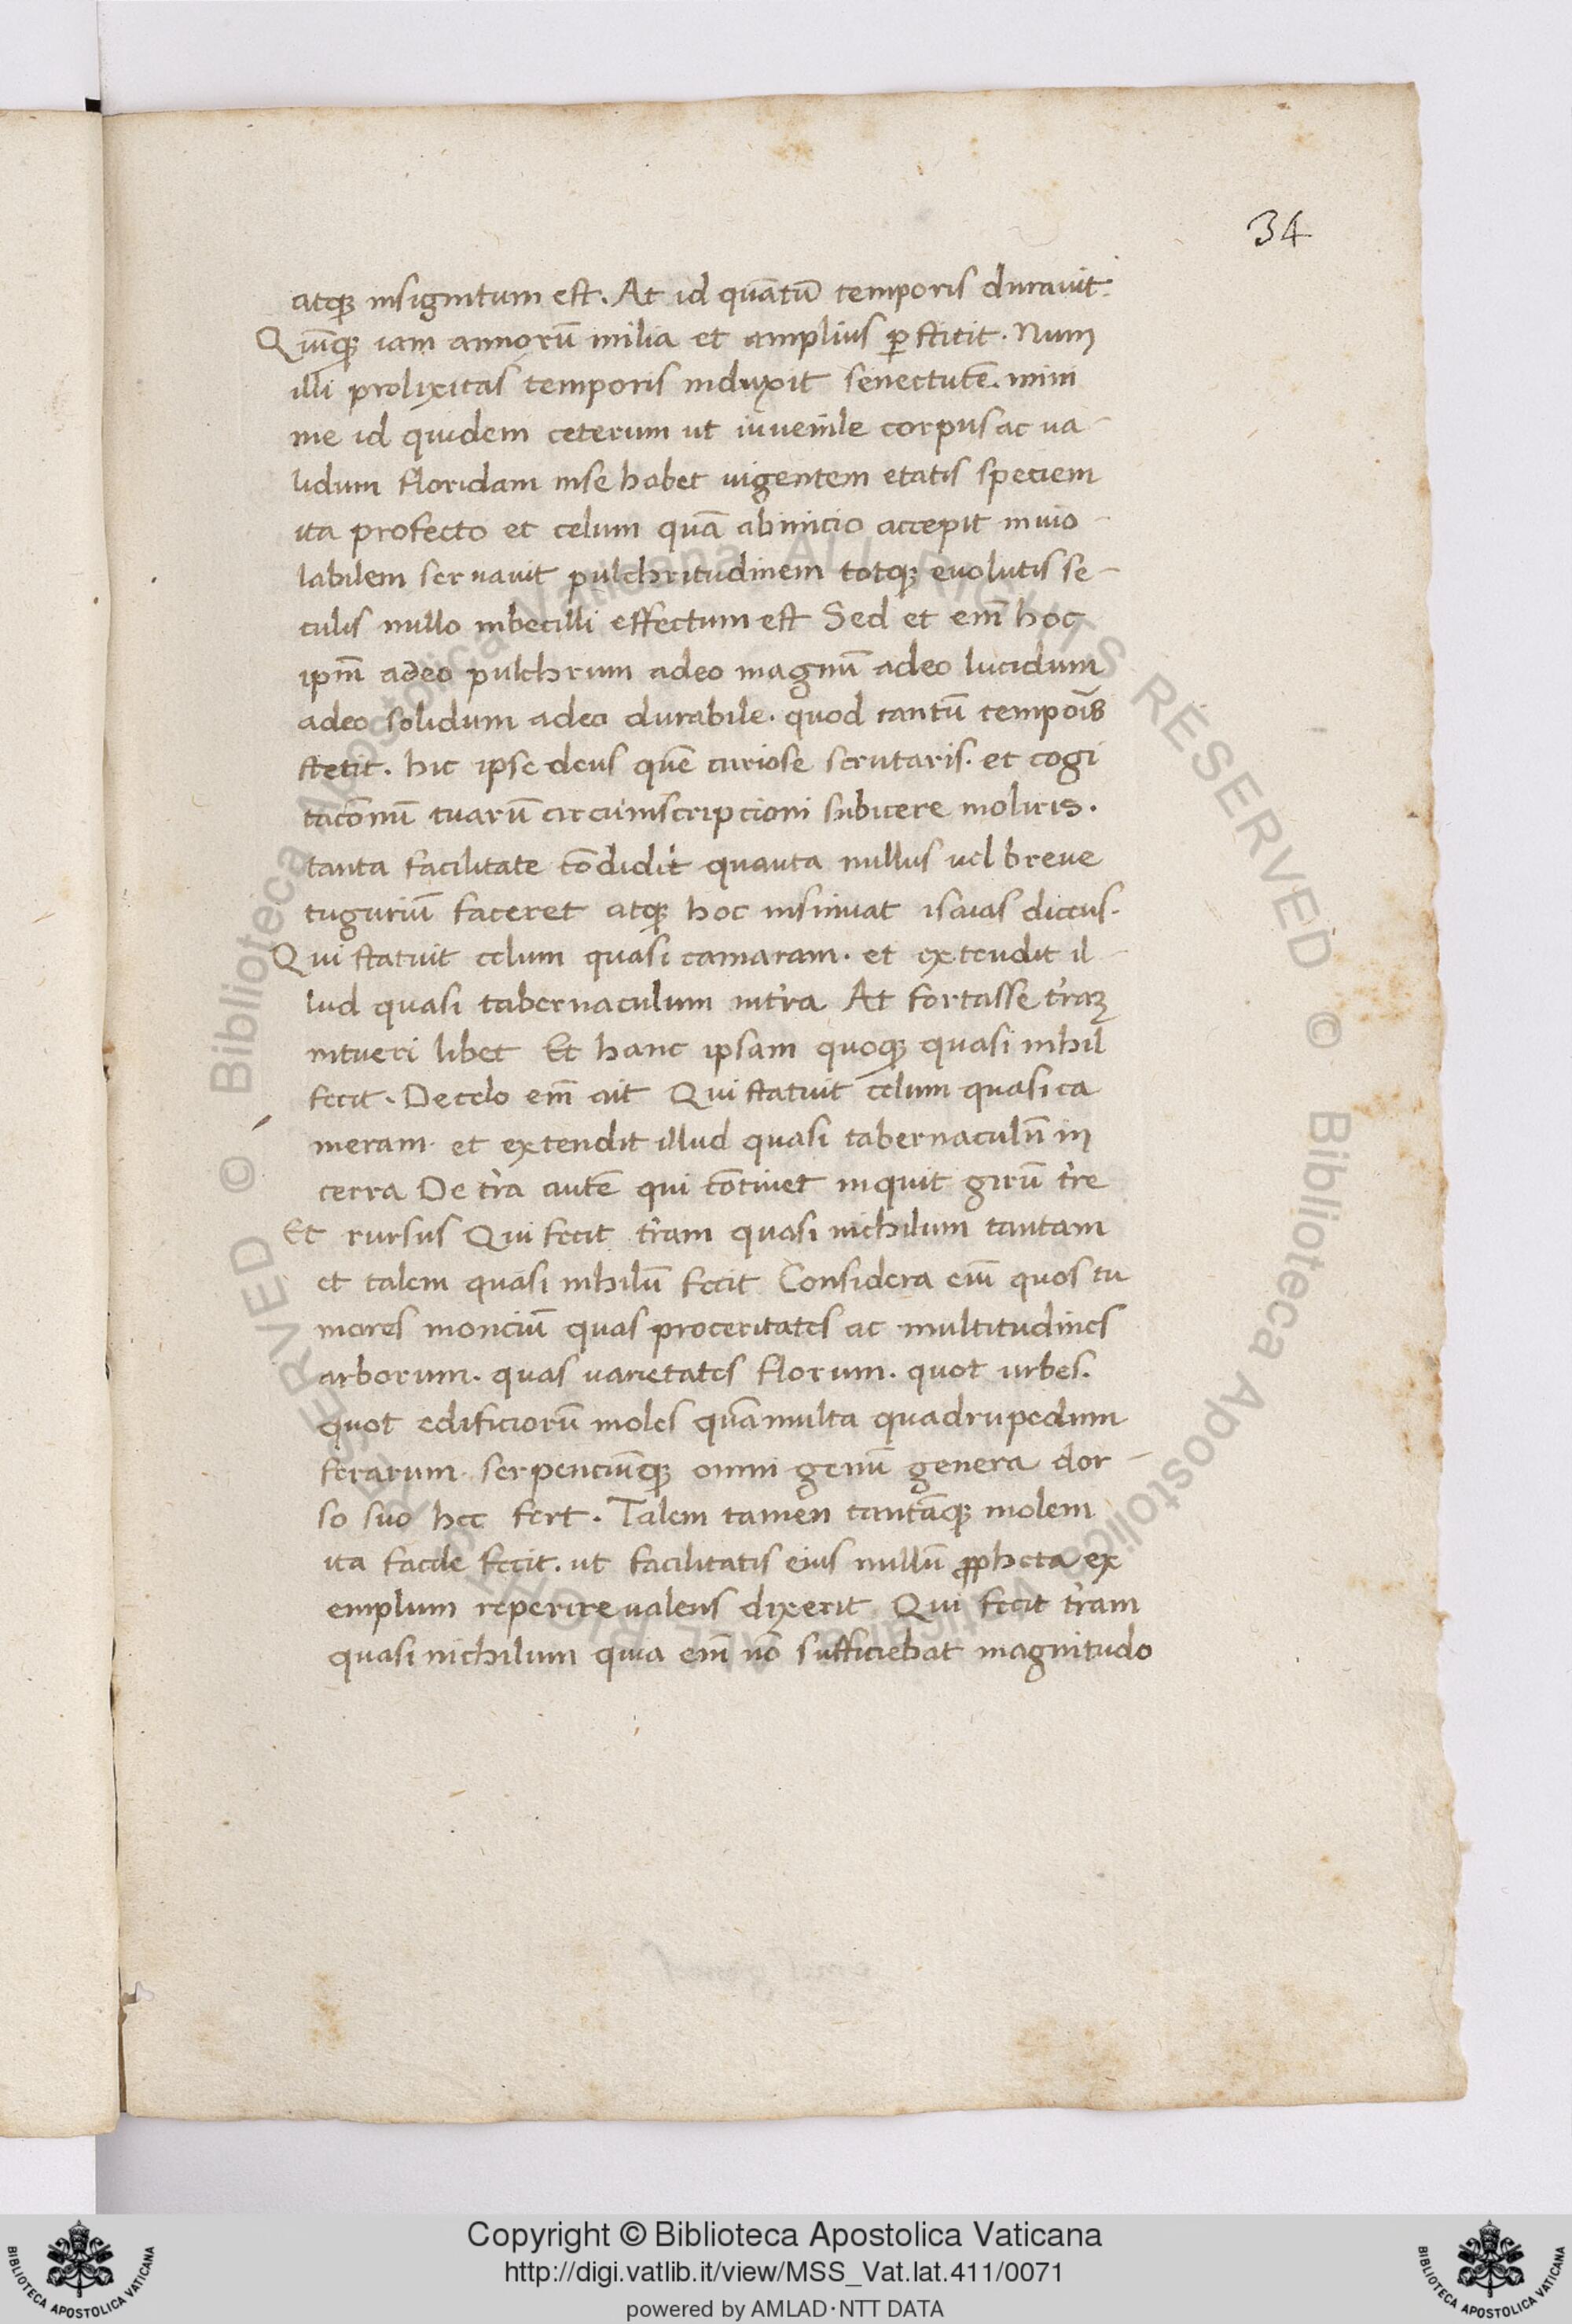 34
atq insignitum est. At id quātū temporis durauit.
Quīq iam annorū milia et amplius ꝑstitit. Num
illi prolixitas temporis induxit senectutē. mini
me id quidem ceterum ut iuuenile corpus ac ua-
lidum floridam inse habet uigentem etatis speciem
ita profecto et celum quā abinicio accepit inuio-
labilem seruauit pulchritudinem totq euolutis se-
culis nullo inbecilli effectum est Sed et em̄ hoc
ipm̄ adeo pulchrum adeo magnū adeo lucidum
adeo solidum adeo durabile. quod tantū tempoīs
stetit. hic ipse deus quē curiose scrutaris. et cogi
tacōnū tuarū circūinscripcioni subicere moliris.
tanta facilitate cōdidit quanta nullus uel breue
tuguriū faceret atq hoc insinuat isaias dicens.
Qui statuit celum quasi camaram. et extendit il-
lud quasi tabernaculum intr̄a At fortasse tr̄aꝫ
intueri libet Et hanc ipsam quoq quasi nihil
fecit. De celo em̄ ait Qui statuit celum quasi ca
meram. et extendit illud quasi tabernaculū in
terra De tr̄a autē qui cōtinet inquit girū tr̄e
Et rursus Qui fecit tr̄am quasi nichilum tantam
et talem quasi nihilū fecit Considera em̄ quos tu
mores monciū quas proceritates ac multitudines
arborum. quas uarietates florum. quot urbes.
quot edificiorū moles quā multa quadrupedum
ferarum. serpenciūq omni genū genera dor-
so suo hec fert. Talem tamen tantāq molem
ita facile fecit. ut facilitatis eius nullū ꝓpheta ex
emplum reperire ualens dixerit Qui fecit tr̄am
quasi nichilum quia em̄ nō sufficiebat magnitudo
© Biblioteca Apostolica Vaticana ALL RIGHTS RESERVED © Biblioteca Apostolica Vaticana ALL RIGHTS RESERVED
Copyright © Biblioteca Apostolica Vaticana
http://digi.vatlib.it/view/MSS_Vat.lat.411/0071
powered by AMLAD·NTT DATA
BIBLIOTECA APOSTOLICA VATICANA
BIBLIOTECA APOSTOLICA VATICANA